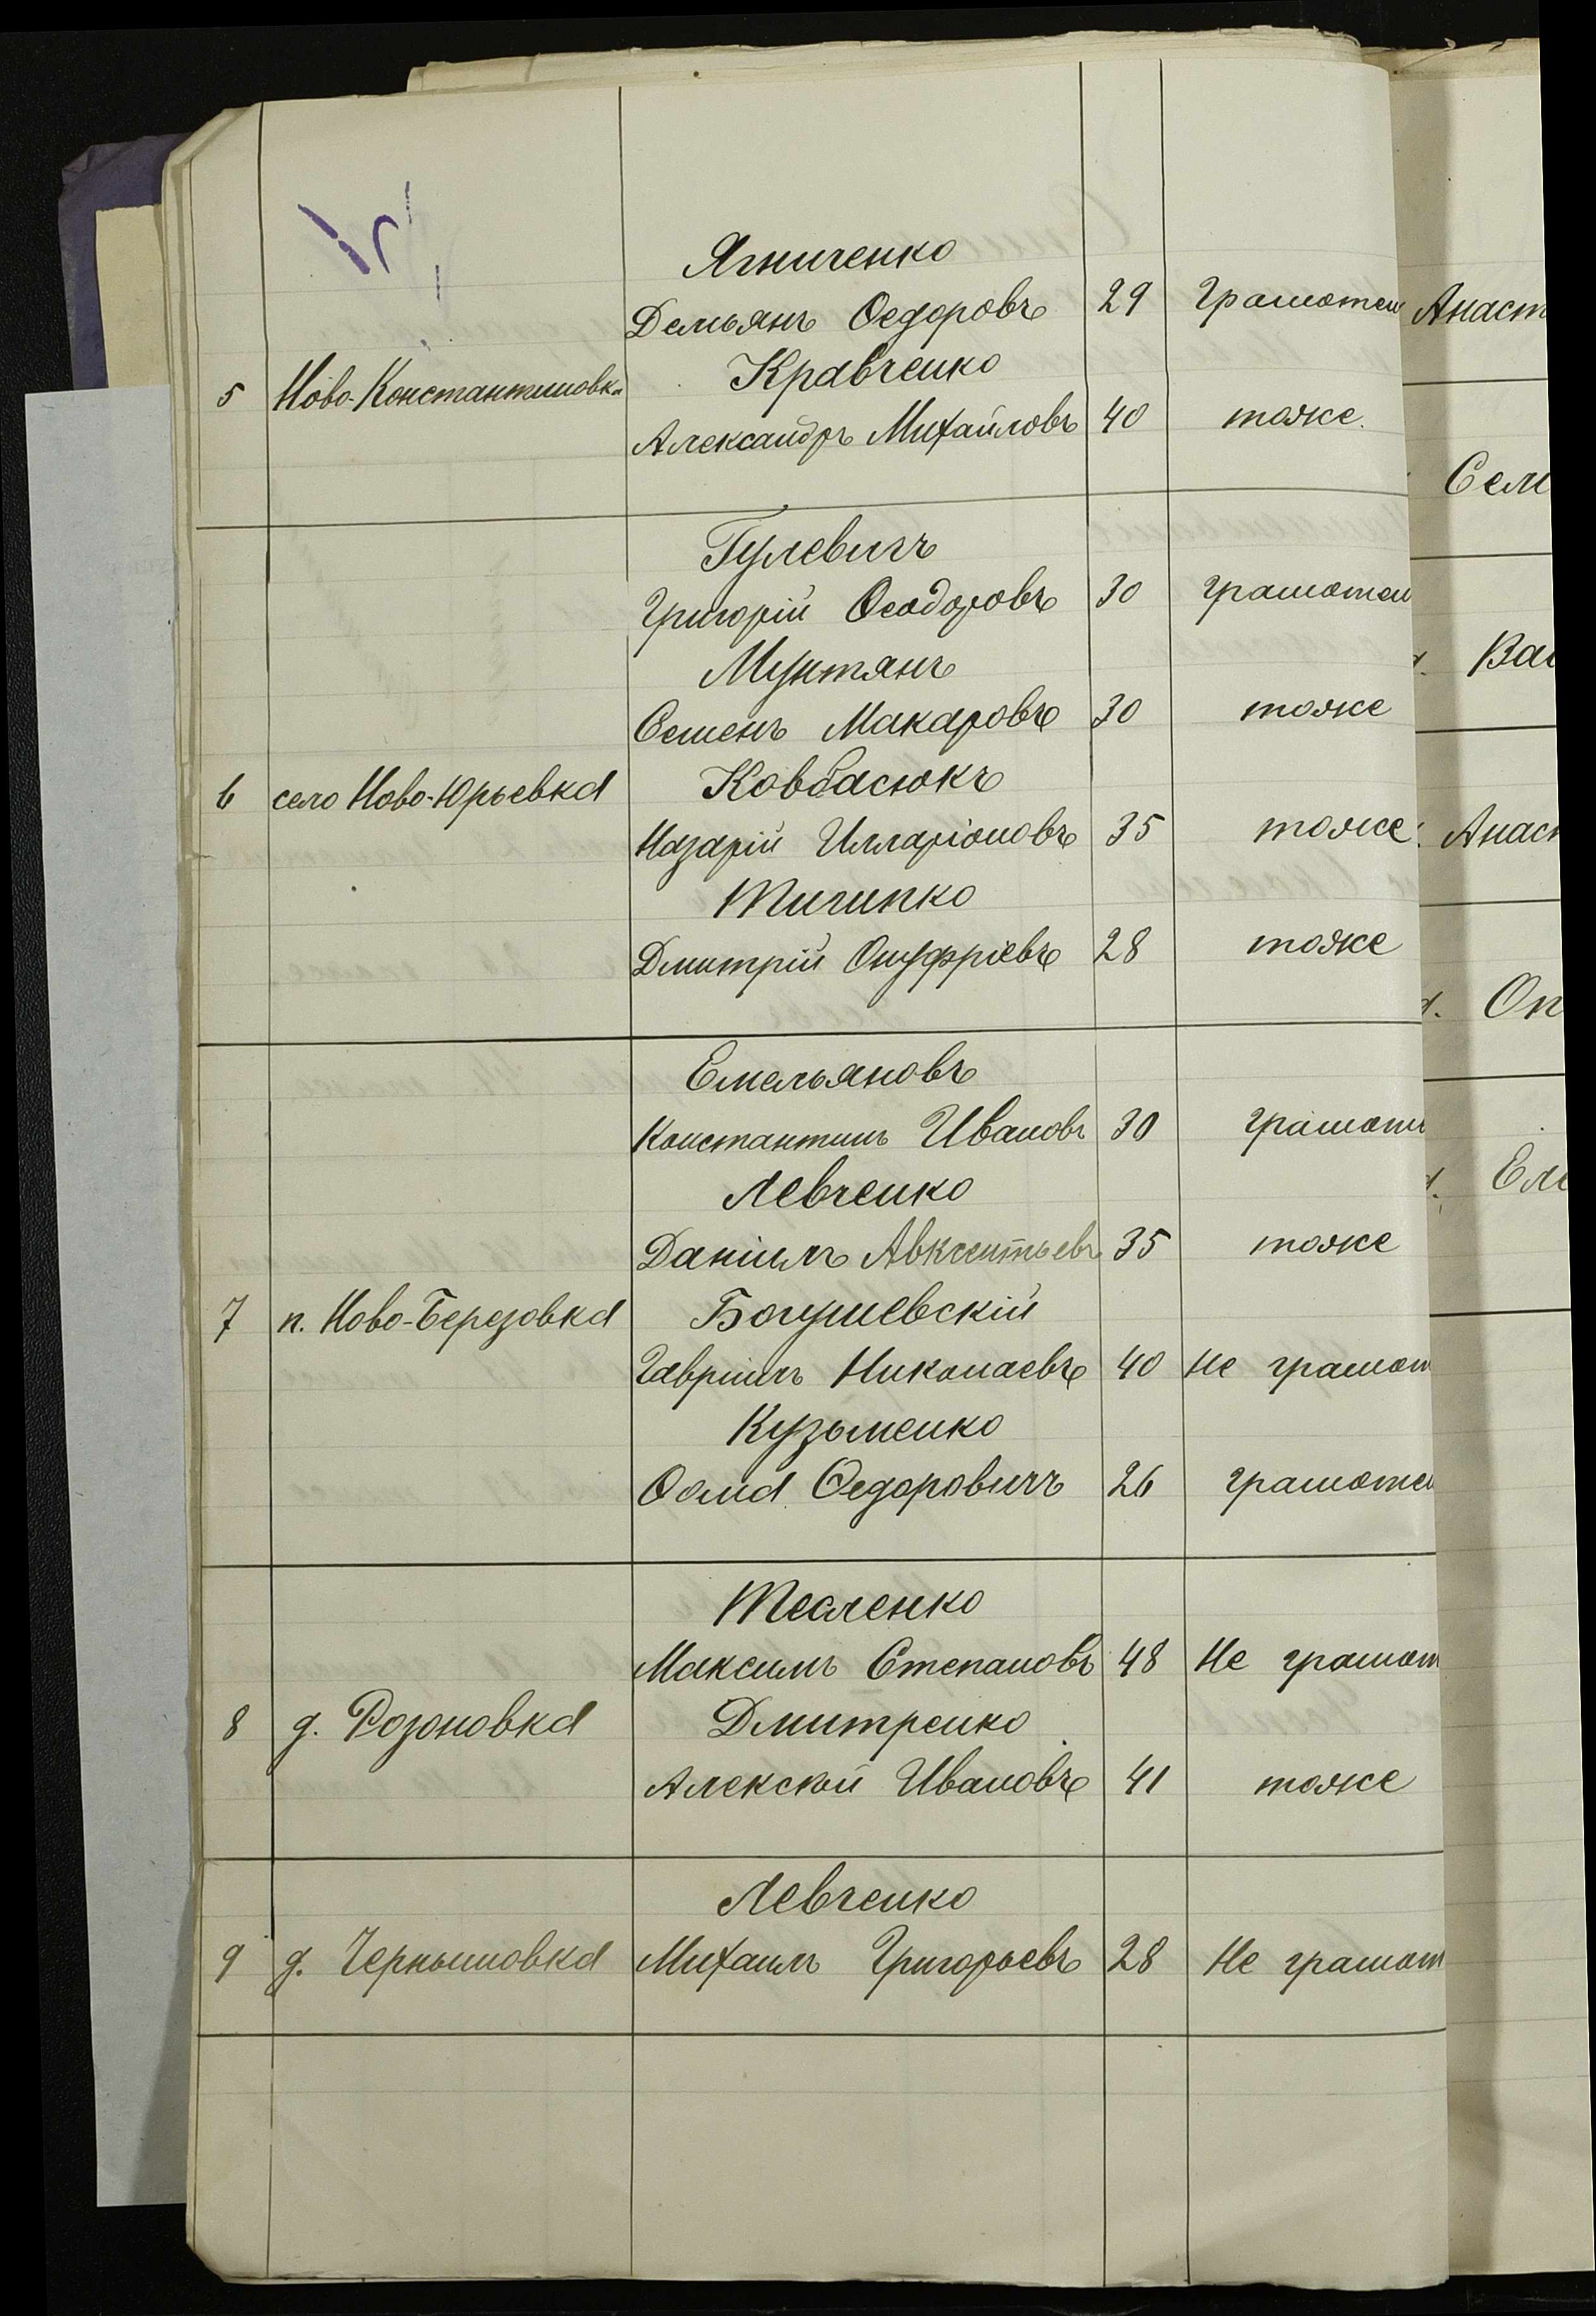 Ягниченко
Демьянъ Ѳедоровъ 29 Грамотен
5 Ново-Константиновка Кравченко
Александръ Михайловъ 40 тоже.
Гулевичъ
Григорій Ѳеодоровъ 30 грамотен
Мунтянъ
Семенъ Макаровъ 30 тоже
6 село Ново-Юрьевка Ковбасюкъ
Назарій Илларіоновъ 35 тоже
Тигипко
Дмитрій Онуфріевъ 28 тоже
Емельяновъ
Константинъ Ивановъ 30 грамотн
Левченко
Даніилъ Авксентьевъ 35 тоже
7 п. Ново-Березовка Богушевскій
Гавріилъ Николаевъ 40 Не грамот
Кузьменко
Ѳома Ѳедоровичъ 26 грамотен
Тесленко
Максимъ Степановъ 48 Не грамот
8 д. Розоновка Дмитренко
Алексѣй Ивановъ 41 тоже
Левченко
9 д. Чернышовка Михаилъ Григорьевъ 28 Не грамот
Анаст
Сем
Ва
Анаст
Он
Ел